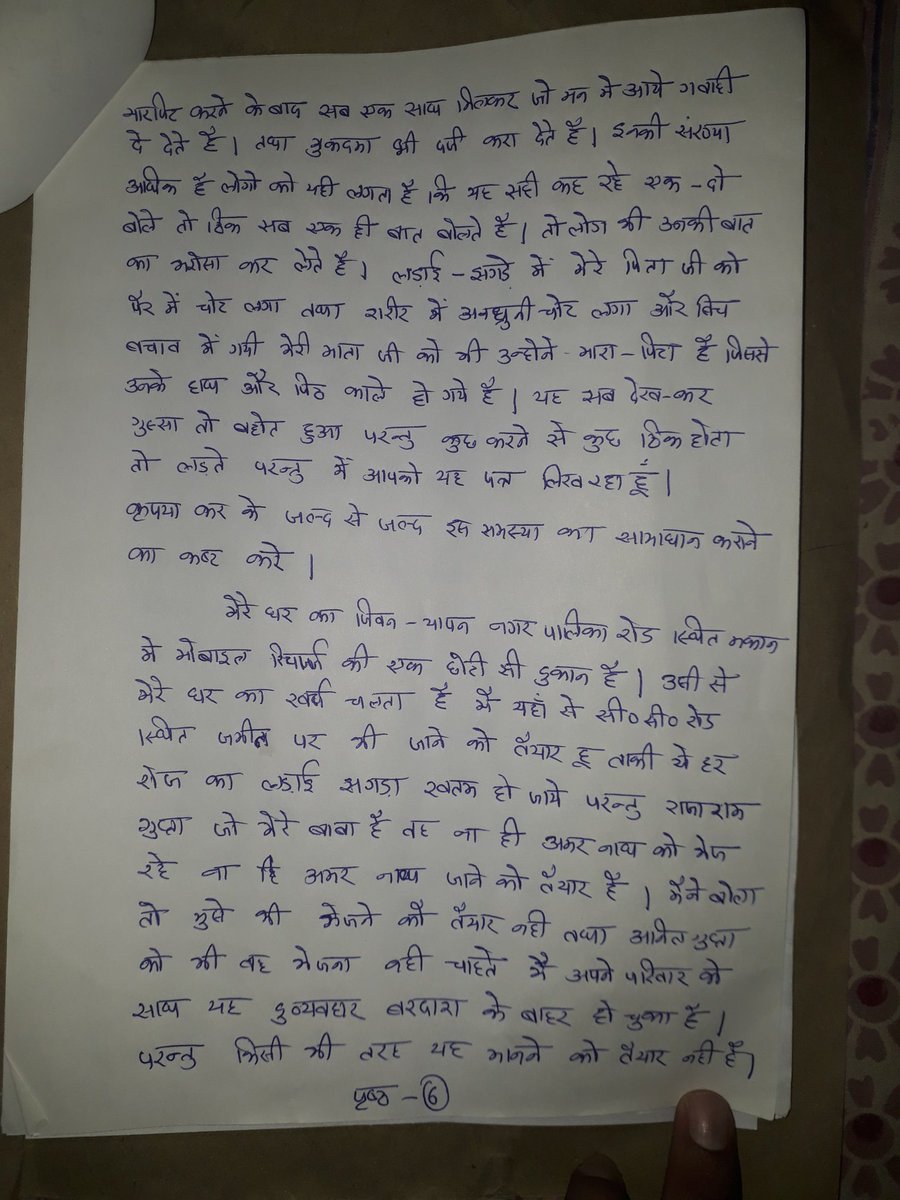 मारपिट करने के बाद सब एक साथ मिलकर जो मन मे आये गवाही
दे देते है। तथा मुकदमा भी दर्ज करा देते है। इनकी संख्या
अधिक है लोगो को यही लगता है कि यह सही कह रहे एक-दो
बोले तो ठिक सब एक ही बात बोलते है। तो लोग भी उनकी बात
का भरोसा कर लेते है। लड़ाई-झगड़े में मेरे पिता जी को
पैर में चोट लगा तथा शरीर में अनधुनी चोट लगा और बिच
बचाव में गयी मेरी माता जी को भी उन्होने मारा-पिटा है जिससे
उनके हाथ और पिठ काले हो गये है। यह सब देख-कर
गुस्सा तो बहोत हुआ परन्तु कुछ करने से कुछ ठिक होता
तो लड़ते परन्तु में आपको यह पत्र लिख रहा हूँ।
कृपया कर के जल्द से जल्द इस समस्या का सामाधान कराने
का कष्ट करे।
मेरे घर का जिवन-यापन नगर पालिका रोड स्थित मकान
मे मोबाइल रिचार्ज की एक छोटी सी दुकान है। उसी से
मेरे घर का खर्च चलता है मै यहाँ से सी० सी० रोड
स्थित जमीन पर भी जाने को तैयार हू ताकी ये हर
रोज का लड़ाई झगड़ा खतम हो जाये परन्तु राजा राम
गुप्ता जो मेरे बाबा है वह ना ही अमर नाथ को भेज
रहे ना हि अमर नाथ जाने को तैयार है। मैने बोला
तो मुझे भी भेजने को तैयार नही तथा अमित गुप्ता
को भी वह भेजना नही चाहते मै अपने परिवार के
साथ यह दुव्यवहार बरदाश के बाहर हो चुका है।
परन्तु किसी भी तरह यह मानने को तैयार नही है।
पृष्ठ - 6